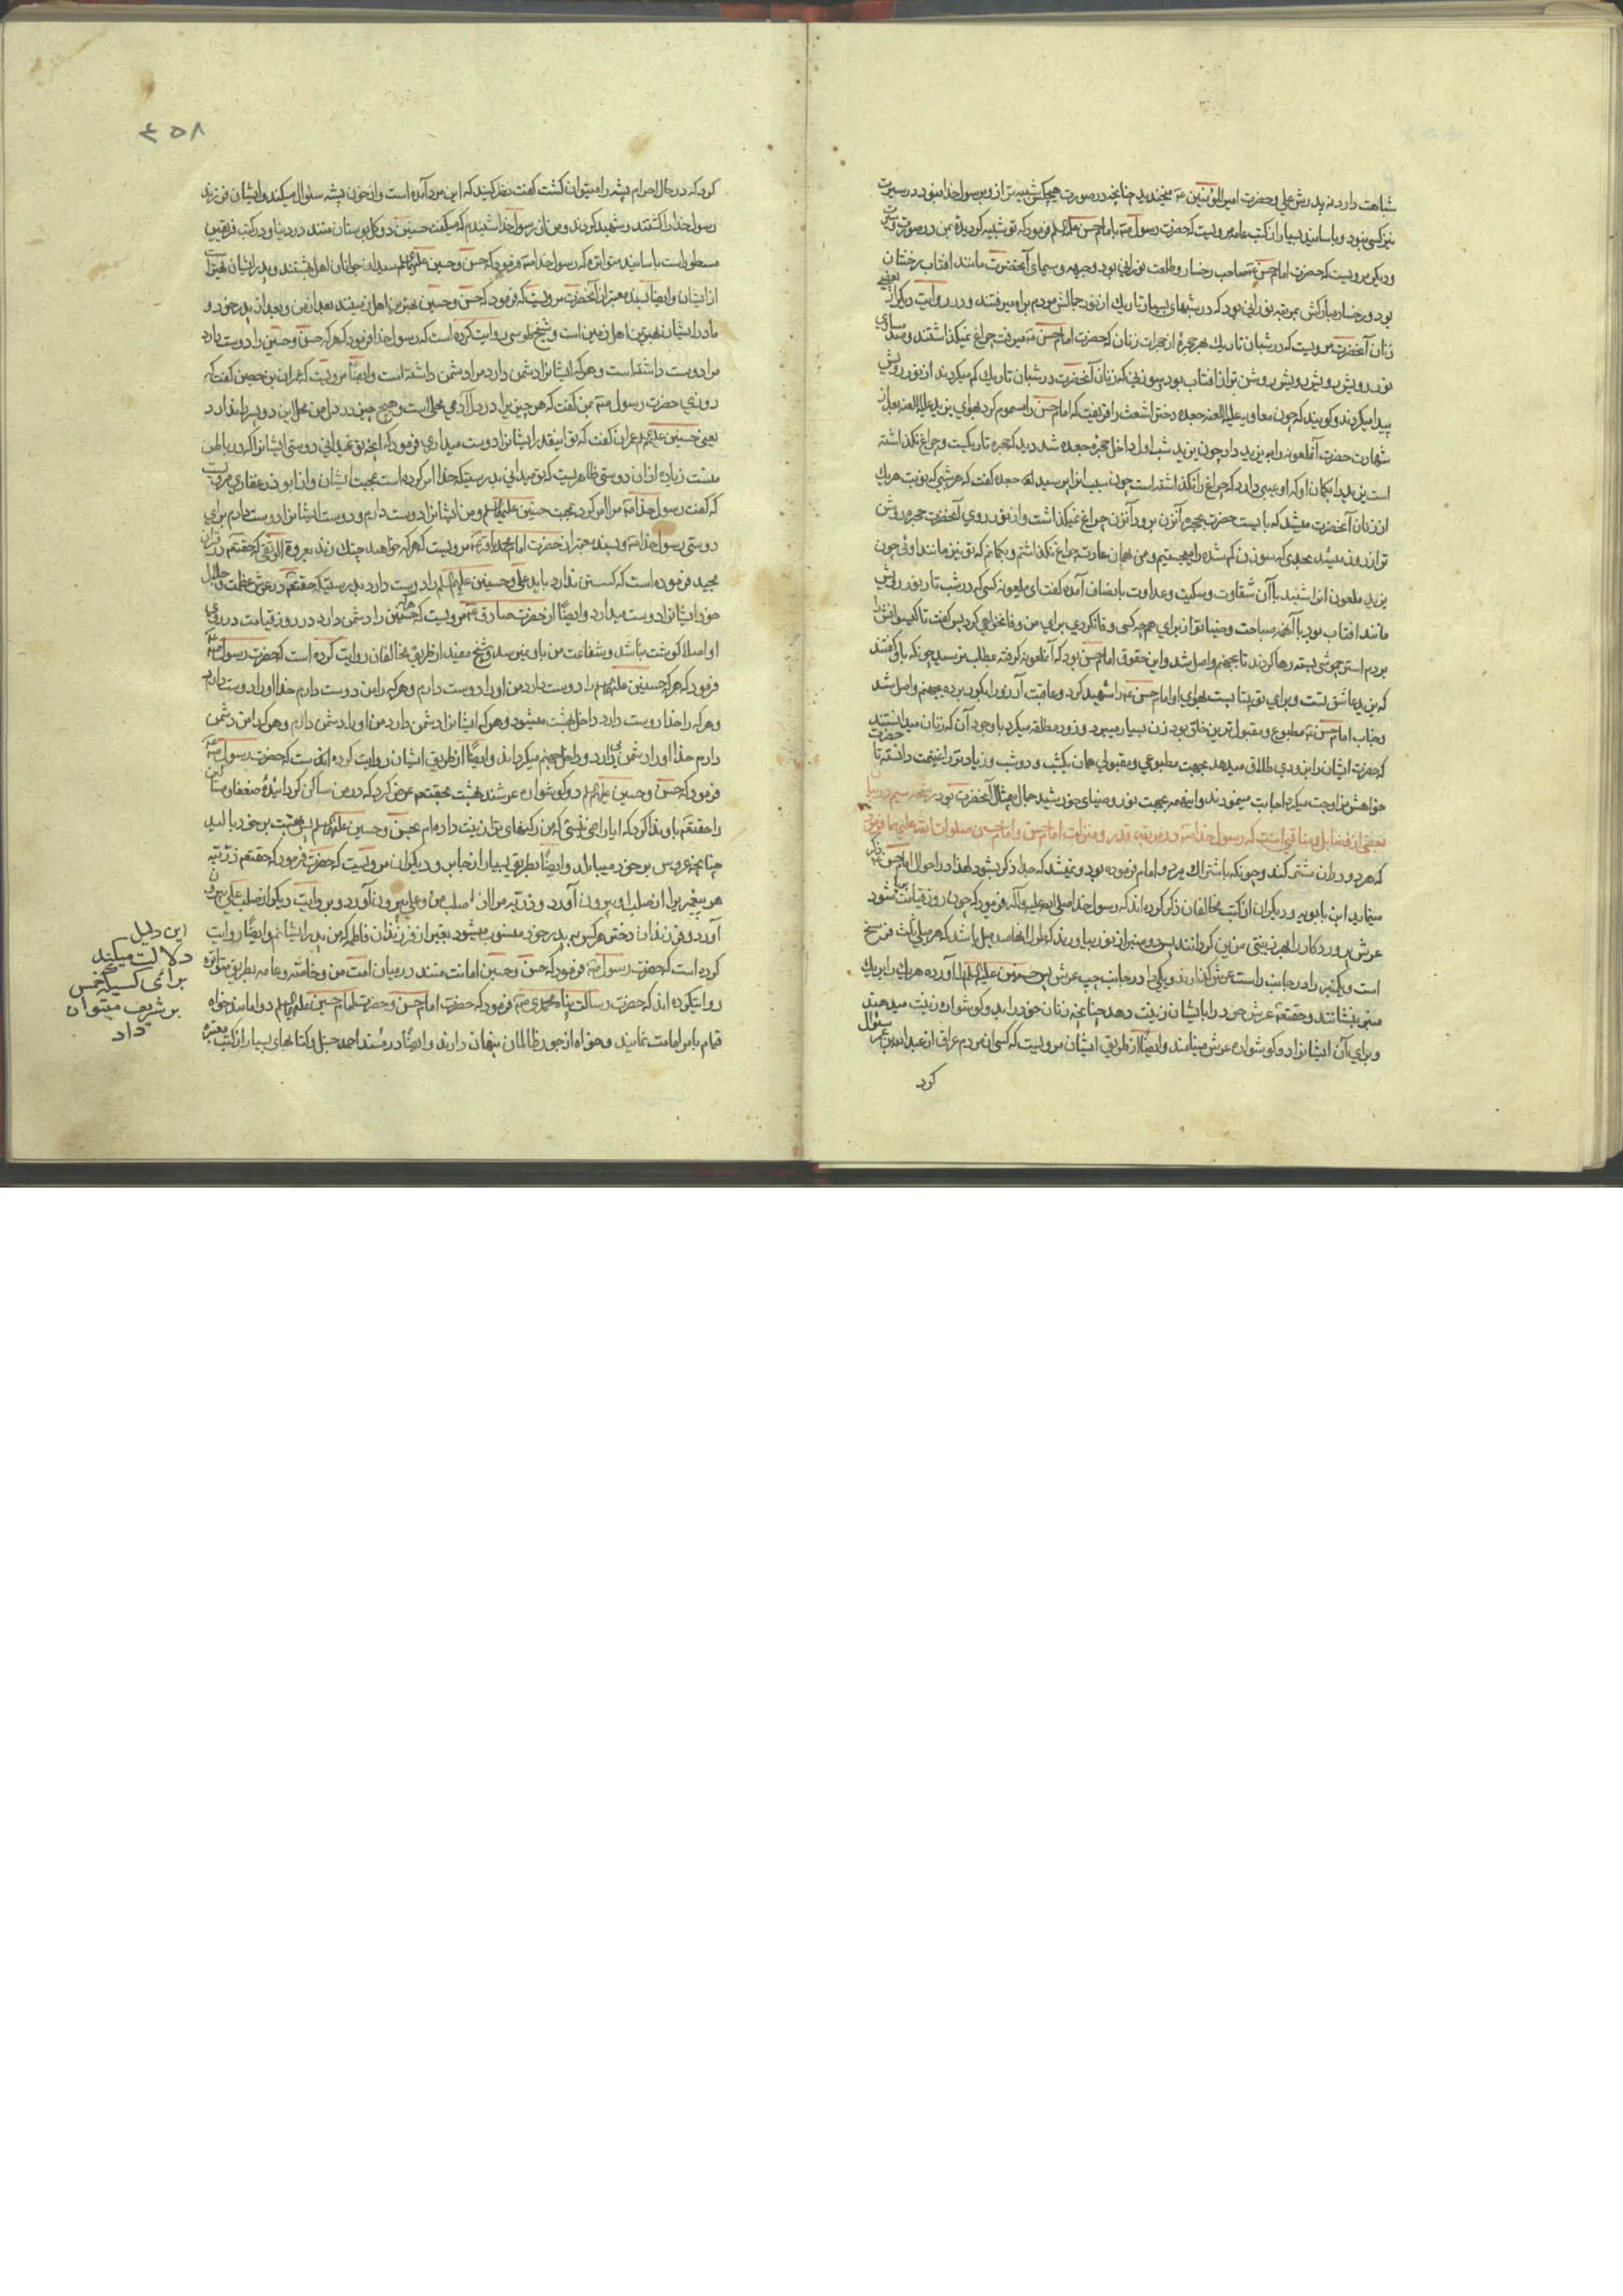 شباهت دارد نه پدرش علي و حضرت امير المؤمنين ع ميخنديد چنانچه در صورت هيچكس شبيه تر از و برسول خدا نبود در سيرت
نيز كسي نبود و باسانيد بسيار از كتب عامه مرويست كه حضرت رسول ص با امام حسن عليه السلم فرمود كه تو شبيه كرديدهٔ بمن در صورت و سيرت
و ديكر مرويست كه حضرت امام حسن ع صاحب رخسار و طلعت نوراني بود و جبهه و سيماي آنحضرت مانند افتاب درخشان
بود و رخسار مباركش بمرتبه نوراني بود كه در شبهاي بسيار تاريك از نور جمالش مردم براه ميرفتند و در روايت ديكر از بعضي
زنان آنحضرت مرويست كه در شبان تاريك هر حجرهٔ از حجرات زنان كه حضرت امام حسن ع ميرفت چراغ نميكذاشتند و
نور رويش روشن تر از افتاب بود سوزني كه زنان آنحضرت در شبان تاريك كم ميكردند از نور رويش
پيدا ميكردند و كويند كه چون معاويه عليه اللعنه جعده دختر اشعث را فريفت كه امام حسن را مسموم كرد بهواي يزيد عليه اللعنه بعد از
شهادت حضرت آنملعونه را به يزيد داد چون يزيد شب اول داخل حجرهٔ جعده شد ديد كه حجره تاريكست و چراغ نكذاشته
است يزيد را كمان او كه او عيبي دارد كه چراغ را نكذاشته است چون سبب انرا پرسيد جعده كفت كه هر شبي كه نوبت هر يك
از زنان آنحضرت ميشد كه بايست حضرت بحجره آنزن برود آنزن چراغ نميكذاشت و از نور روي آنحضرت حجره روشن
تر از روز ميشد بحدي كه سوزن كم شده را ميجستيم و من بهمان عادت چراغ نكذاشتم و بكمانم كه تو نيز مانند اوئي چون
يزيد ملعون انرا شنيد با آن شقاوت و عداوت بانصاف آمده كفت اي ملعونه كسي كه در شب تار نور رويش
مانند افتاب بود با آنهمه صباحت و ضيا تو از براي هر چه كسي وفا نكردي براي من وفا نخواهي كرد پس كفت تا كيسوانش را
بر دم استر چموشي بسته رها كردند تا بجهنم واصل شد و اين حقوق امام حسن بود كه آنملعونه كرفته بمطلب نرسيد چونكه باو كفتند
كه يزيد عاشق تست و براي تو بيتابست بهواي او امام حسن ع را شهيد كرد و عاقبت آرزو را بكور برده بجهنم واصل شد
و جناب امام حسن ع مطبوع و مقبول ترين خلق بود زن بسيار ميبرد و زود مطلقه ميكرد با وجود آن كه زنان ميدانستند
كه حضرت ايشان را بزودي طلاق ميدهد بجهت مطبوعي و مقبولي همان يكشب و دو شب و زياد تر را غنيمت دانسته تا حضرت
خواهش مزاوجت ميكرد اجابت مينمودند و اينهمه بجهت نور و ضياي خورشيد جمال بيمثال آنحضرت بود
بعضي از فضايل و مناقبي است كه رسول خدا ص در مرتبه قدر و منزلت امام حسن و امام حسين صلوات الله عليهما فرموده
كه هر دو در ان مشتركند و چونكه باشتراك هر دو امام فرموده بود و نميشد كه جدا ذكر بشود لهذا در احوال امام حسن ع ذكر
مينمايد ابن بابويه و ديكران از كتب مخالفان ذكر كرده اند كه رسول خدا صلي الله عليه و آله فرمود كه چون روز قيامت شود
عرش پروردكار را بهر زينتي مزين كردانند پس دو منبر از نور بياورند كه طول انها صد ميل باشد كه هر ميلي ثلث فرسخ
است و يك منبر را در جانب راست عرش كذارند و يكي را در جانب چپ عرش پس حسنين عليهما السلم را آورده هر يك را بر يك
منبر بنشانند و حقتعالى عرش خود را بايشان زينت دهد چنانچه زنان خود را بدو كوشواره زينت ميدهند
و براي آن ايشانرا دو كوشواره عرش مينامند و ايضًا از طريق ايشان مرويست كه كسي از مردم عراق از عبد الله بن عمر سئوال
كرد
٤٥٨
كرد كه در حال احرام پشه را ميتوان كشت كفت نظر كنيد كه اين مرد آمده است و از خون پشه سئوال ميكند و ايشان فرزند
رسول خدا را كشتند و شهيد كردند و من از رسول خدا شنيدم كه ميكفت حسنين دو كل بوستان منند در دنيا و در كتب فريقين
مسطور است باسانيد متواتره كه رسول خدا ص فرمود كه حسن و حسين عليهما السلم سيدان جوانان اهل بهشتند و پدر ايشان بهتر است
از ايشان و ايضًا بسند معتبر از آنحضرت مرويست كه فرمود كه حسن و حسين بهترين اهل زمينند بعد از من و بعد از پدر خود و
مادر ايشان بهترين زنان اهل زمين است و شيخ طوسي روايت كرده است كه رسول خدا فرمود كه هر كه حسن و حسين را دوست دارد
مرا دوست داشته است و هر كه ايشانرا دشمن دارد مرا دشمن داشته است و ايضًا مرويست كه عمران بن حصين كفت كه
روزي حضرت رسول ص بمن كفت كه هر چيزيرا در دل آدمي محلي است و هيچ چيز در دل من محل اين دو پسر را ندارد
يعني حسنين عليهما السلم عمران كفت كه تو اينقدر ايشانرا دوست ميداري فرمود كه انچه تو نميداني دوستي ايشانرا كه در باطن
منست زياده از ان دوستي ظاهريست كه تو ميداني بدرستيكه خدا امر كرده است بمحبت ايشان و از ابو ذر غفاري مرويست
كه كفت رسول خدا ص مرا امر كرد بمحبت حسنين عليهما السلم و من ايشانرا دوست دارم و دوست ايشانرا دوست دارم براي
دوستي رسول خدا ص و بسند معتبر از حضرت امام محمد باقر ع مرويست كه هر كه خواهد چنك زند بعروة الوثقى كه حقتعالى در قران
مجيد فرموده است كه كسستن ندارد بايد علي و حسنين عليهم السلم را دوست دارد بدرستيكه حقتعالى در عرش عظمت و جلال
خود ايشانرا دوست ميدارد و ايضًا از حضرت صادق ع مرويست كه هر كه حسنين را دشمن دارد در روز قيامت در روي
او اصلا كوشت نباشد و شفاعت من باو نميرسد و شيخ مفيد از طريق مخالفان روايت كرده است كه حضرت رسول ص
فرمود كه هر كه حسنين عليهما السلم را دوست دارد من او را دوست دارم و هر كه را من دوست دارم خدا او را دوست دارد
و هر كه را خدا دوست دارد داخل بهشت ميشود و هر كه ايشانرا دشمن دارد من او را دشمن دارم و هر كه را من دشمن
دارم خدا او را دشمن دارد و داخل جهنم ميكرداند و ايضًا از طريق ايشان روايت كرده اند كه حضرت رسول ص
فرمود كه حسن و حسين عليهما السلم دو كوشواره عرشند بهشت بحقتعالى عرض كرد كه در من ساكن كردانيدهٔ ضعفا و مساكين
را حقتعالى باو ندا كرد كه ايا راضي نيستي كه من ركنهاي ترا زينت داده ام بحسن و حسين عليهما السلم پس بهشت بر خود باليد
چنانچه عروس بر خود ميبالد و ايضًا بطريق بسيار از جابر و ديكران مرويست كه حضرت فرمود كه حقتعالى ذريّه
هر پيغمبر را از صلب او بيرون آورد و ذريه مرا از صلب من و علي بيرون آورد و بروايت ديكر از صلب علي بيرون
آورد و فرزندان دختر هر كس به پدر خود منسوب ميشود بغير از فرزندان فاطمه كه من پدر ايشانم و ايضًا روايت
كرده است كه حضرت رسول ص فرمود كه حسن و حسين امانت منند در ميان امت من و خاصّه و عامه بطريق متواتره
روايتكرده اند كه حضرت رسالت پناه محمدي ص فرمود كه حضرت امام حسن و حضرت امام حسين عليهما السلم دو امامند خواه
قيام بامر امامت نمايند و خواه از جور ظالمان پنهان دارند و ايضًا در مسند احمد حنبل و كتابهاي بسيار از كتب معتبره
اين دليل
دلالت ميكند
براى كسيكه خمس
بر شريف ميتوان
داد